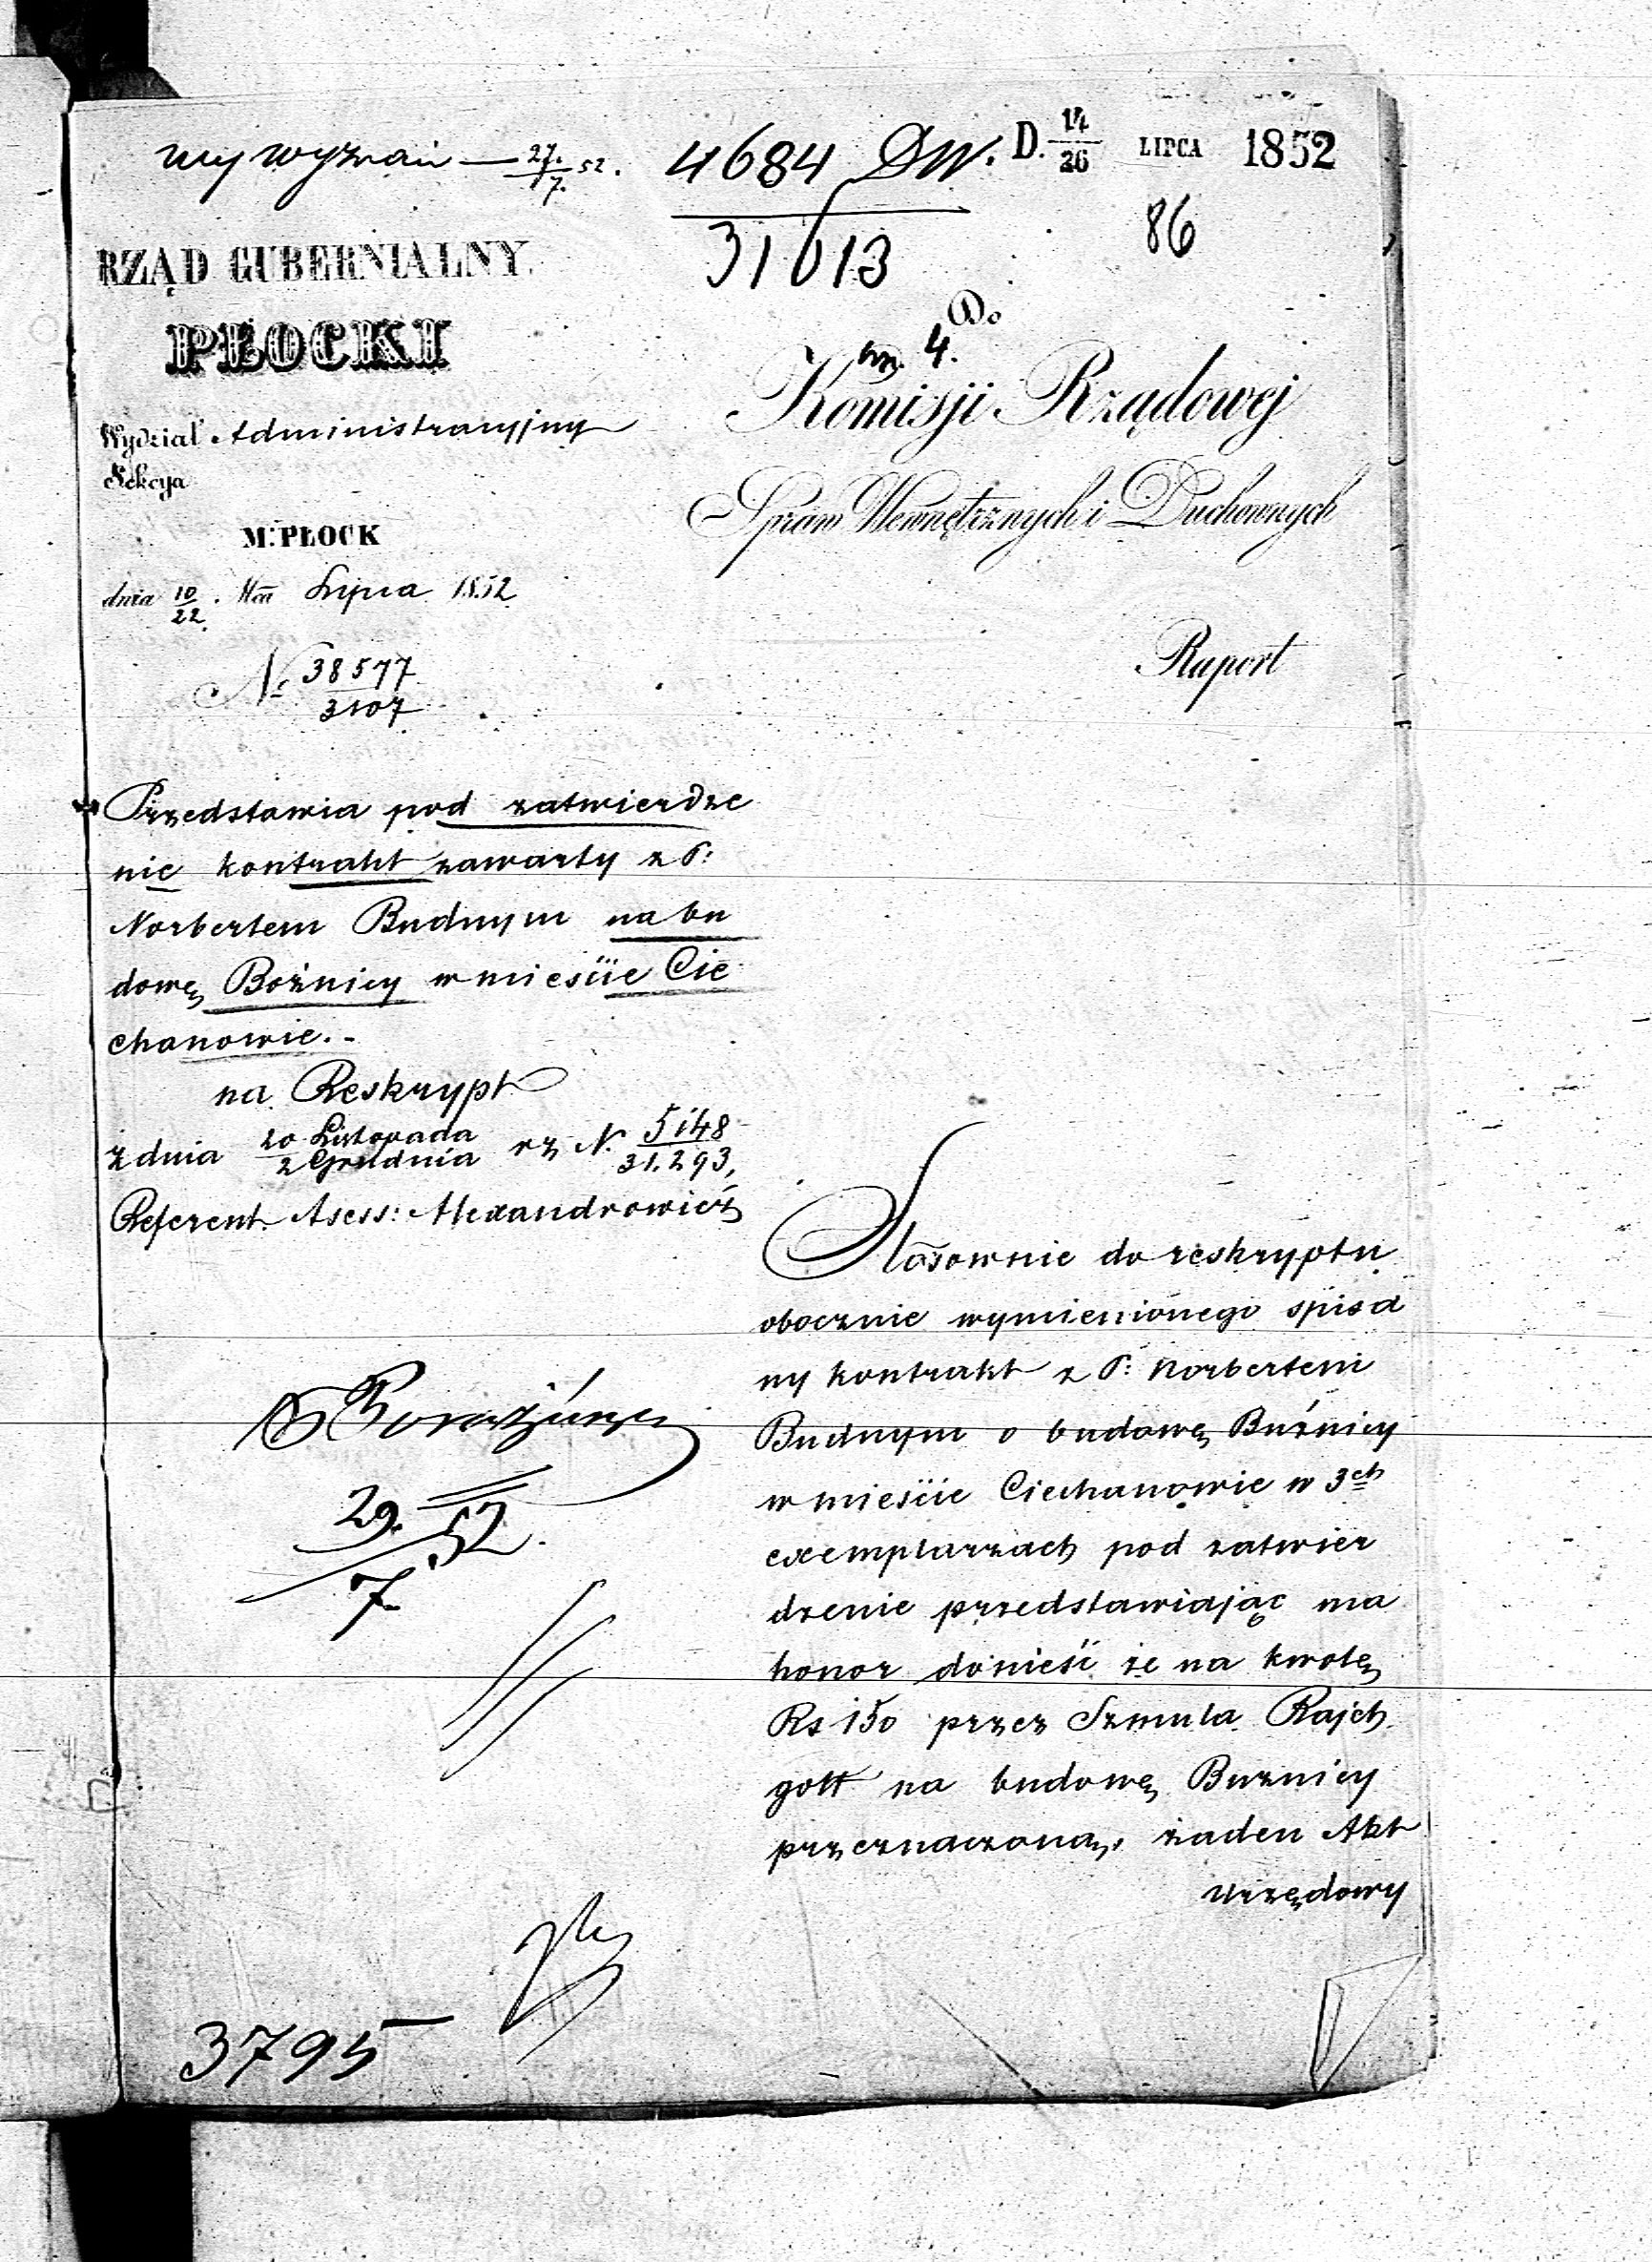 Wy Wyznań — 27/7 52.
4684 DW.
31613
D. 14/26 LIPCA 1852
86
RZĄD GUBERNIALNY
PŁOCKI
Wydział Administracyjny
Sekcya
M. PŁOCK
dnia 10/22 Mca Lipca 1852
№ 38577/3107
Do
4.
Komisji Rządowej
Spraw Wewnętrznych i Duchownych
Raport
Przedstawia pod zatwierdze
nie kontrakt zawarty z P:
Norbertem Budnym na bu
dowę Bożnicy w mieście Cie
chanowie.-
na Reskrypt
z dnia 20 Listopada/2 Grudnia rz N. 5148/31.293,
Referent Asess: Alexandrowicz
29./7 52.
3795
Stosownie do reskryptu
obocznie wymienionego spisa
ny kontrakt z P: Norbertem
Budnym o budowę Buźnicy
w mieście Ciechanowie w 3ch
exemplarzach pod zatwier
dzenie przedstawiając ma
honor donieść że na kwotę
Rs 150 przez Szmula Rajch
gott na budowę Buznicy
przeznaczoną, żaden Akt
Urzędowy